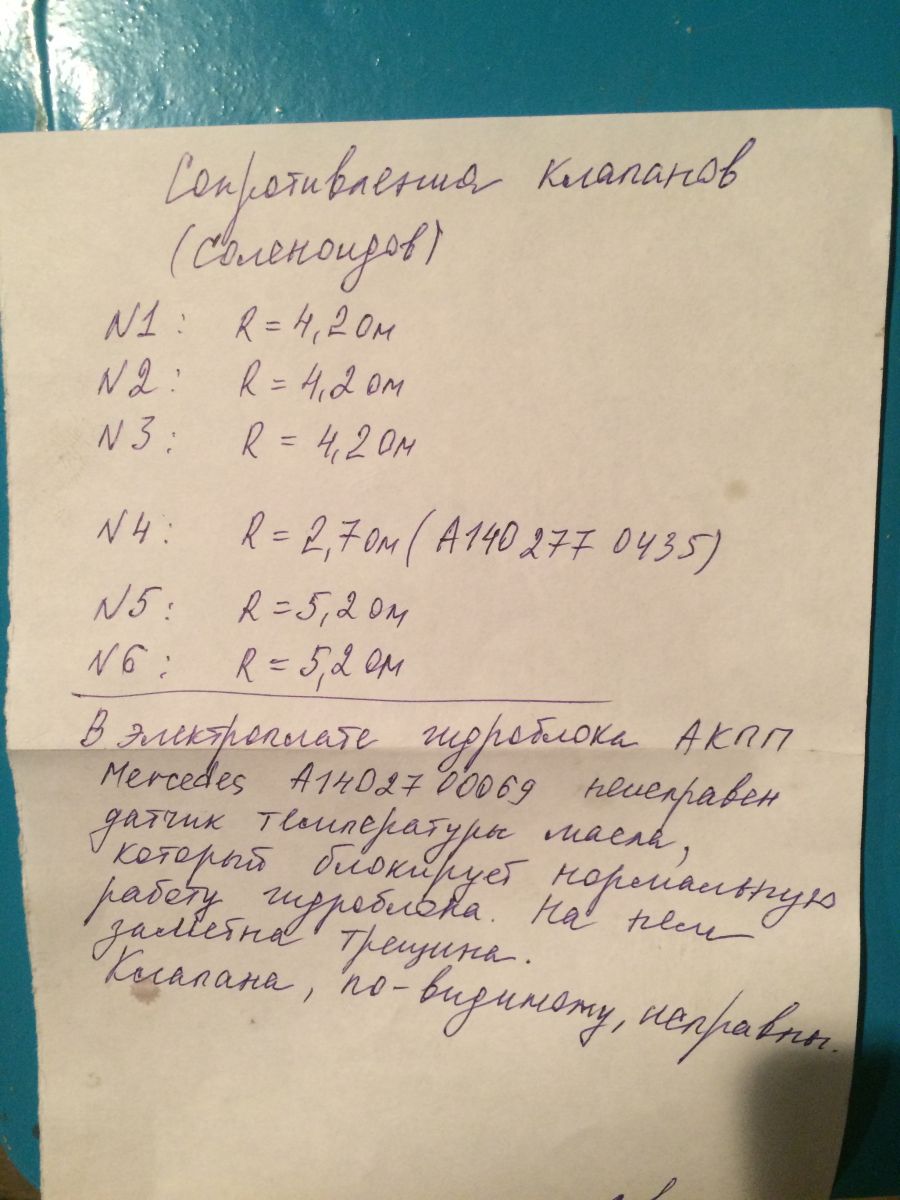 Сопротивления клапанов
(соленоидов)
N1: R = 4,2 Ом
N2: R = 4,2 Ом
N3: R = 4,2 Ом
N4: R = 2,7 Ом (A140 277 0435)
N5: R = 5,2 Ом
N6: R = 5,2 Ом
В электроплате гидроблока АКПП
Mercedes A1402700069 неисправен
датчик температуры масла,
который блокирует нормальную
работу гидроблока. На нем
заметна трещина.
Клапана, по-видимому, исправны.